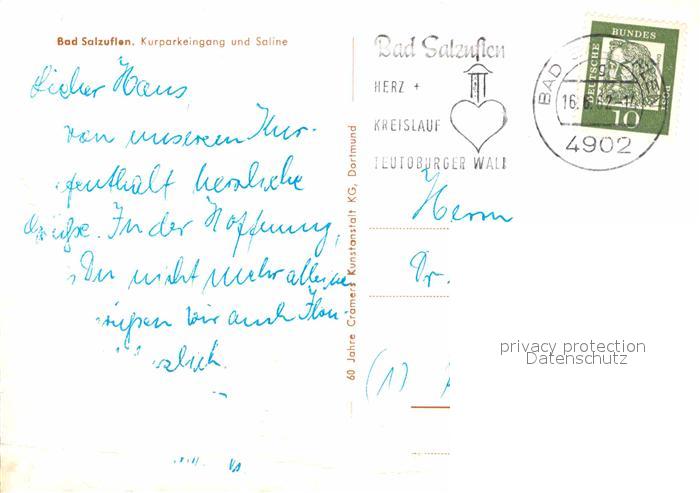 Bad Salzuflen. Kurparkeingang und Saline
Lieber Hans,
von unserem Kur-
aufenthalt herzliche
Grüße. In der Hoffnung,
Du nicht mehr alleine
grüßen wir auch
zlich.
60 Jahre Cramers Kunstanstalt KG, Dortmund
Bad Salzuflen
HERZ +
KREISLAUF
TEUTOBURGER WALD
BAD
16.
4902
DEUTSCHE BUNDESPOST
10
Herrn
Dr.
(1)
privacy protection
Datenschutz